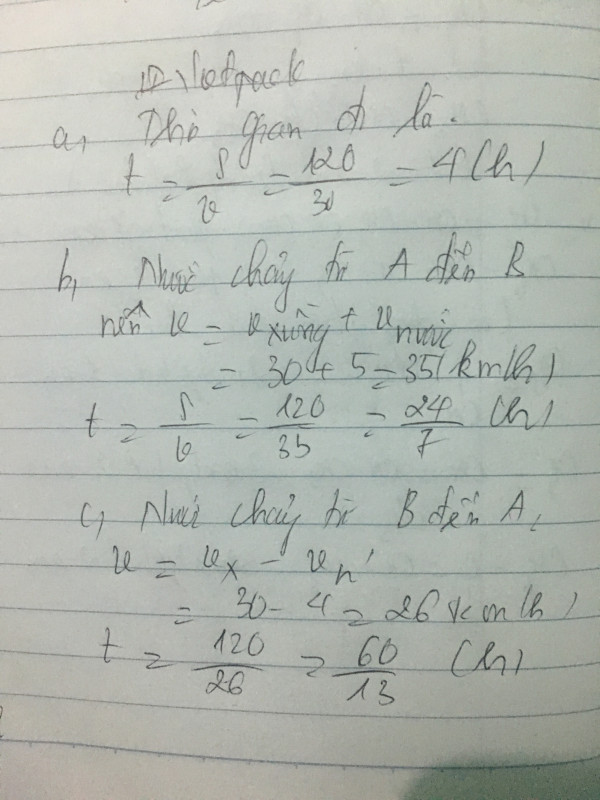 Vietjack
a, Thời gian đi là.
t = S/v = 120/30 = 4(h)
b, Nước chảy từ A đến B
nên v = v xuồng + v nước
= 30 + 5 = 35(km/h)
t = S/v = 120/35 = 24/7 (h)
c, Nước chảy từ B đến A,
v = v x - v n'
= 30 - 4 = 26 km/h)
t = 120/26 = 60/13 (h)